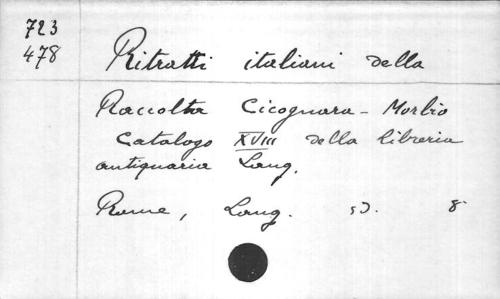 723
478
Ritratti italiani della
Raccolta Cicognara - Morbio
Catalogo XVIII della libreria
antiquaria Lang.
Rome, Lang. s.d. 8